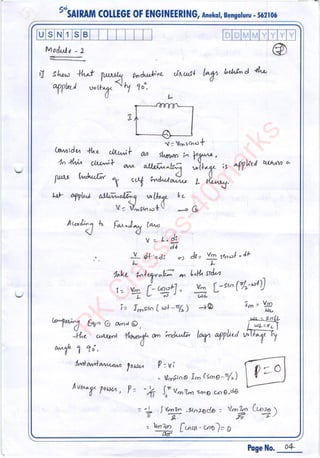 SAIRAM COLLEGE OF ENGINEERING, Anekal, Bengaluru - 562106
U S N 1 S B
D D M M Y Y Y Y
Module - 2
1) Show that purely inductive circuit lags behind the
applied voltage by 90°.
L
I
V = Vm sinωt
Consider the circuit as shown in figure,
In this circuit an alternating voltage is applied across a
pure inductor of self inductance L Henry.
Let applied alternating voltage be
V = Vm sinωt → ①
According to Faraday laws
V = L · di/dt
∴ V/L dt = di ⇒ di = Vm/L sinωt · dt
Take Integration on both sides
i = Vm/L [-cosωt/ω] = Vm/ωL [-sin(π/2-ωt)]
i = Im sin(ωt-π/2) → ②
Im = Vm/ωL
ωL = 2πfL
ωL = XL
Comparing Eqn ① and ②,
the current through an inductor lags applied voltage by
angle of 90°.
Instantaneous power P = vi
= Vm sinθ Im (sinθ-π/2)
P = 0
Average power, P =
Page No. 04